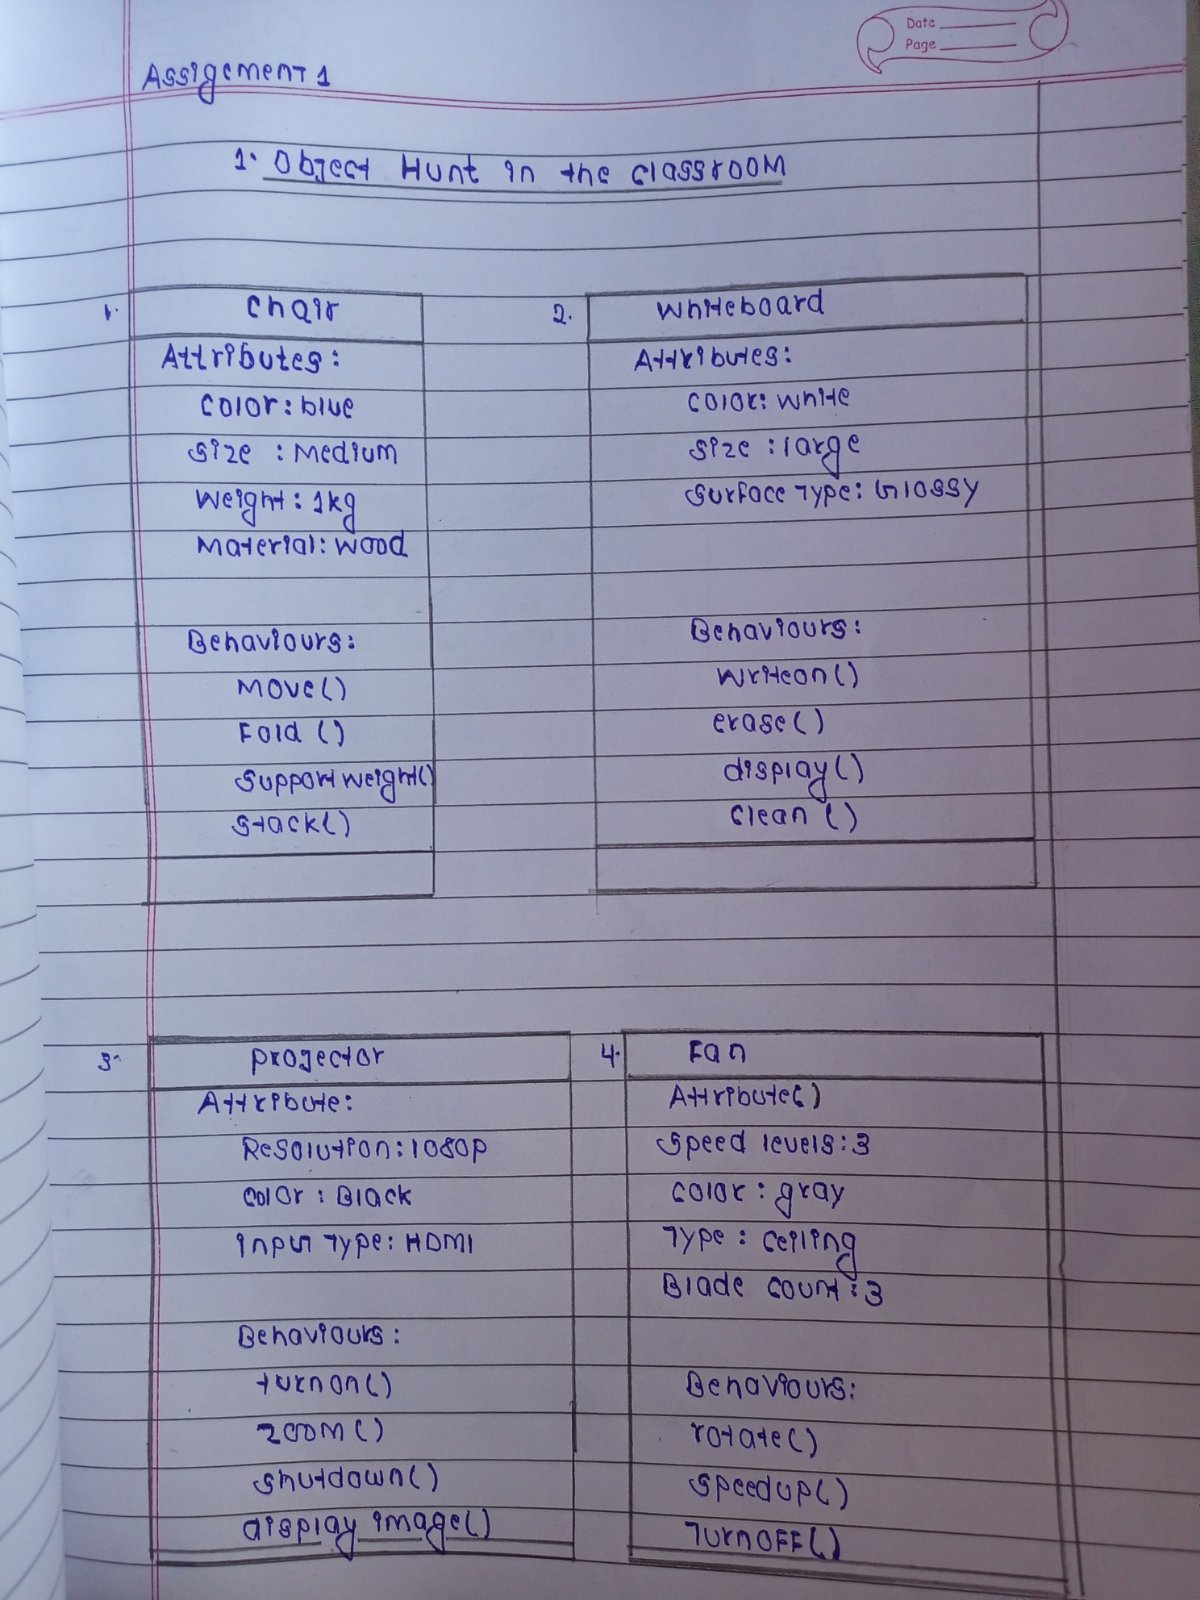 Date
Page
Assigement 1
1. Object Hunt in the classroom
1. Chair
Attributes:
Color: blue
Size : Medium
Weight: 1kg
Material: Wood
Behaviours:
Move()
Fold ()
Supportweight()
Stack()
2. Whiteboard
Attributes:
Color: White
Size : large
Surface Type: Glossy
Behaviours:
Writeon()
erase()
display()
Clean ()
3. Projector
Attribute:
Resolution: 1080p
Color : Black
Input Type: HDMI
Behaviours:
turnon()
Zoom()
Shutdown()
display image()
4. Fan
Attribute()
Speed levels: 3
Color : gray
Type : Ceiling
Blade Count : 3
Behaviours:
rotate()
Speedup()
TurnOFF()